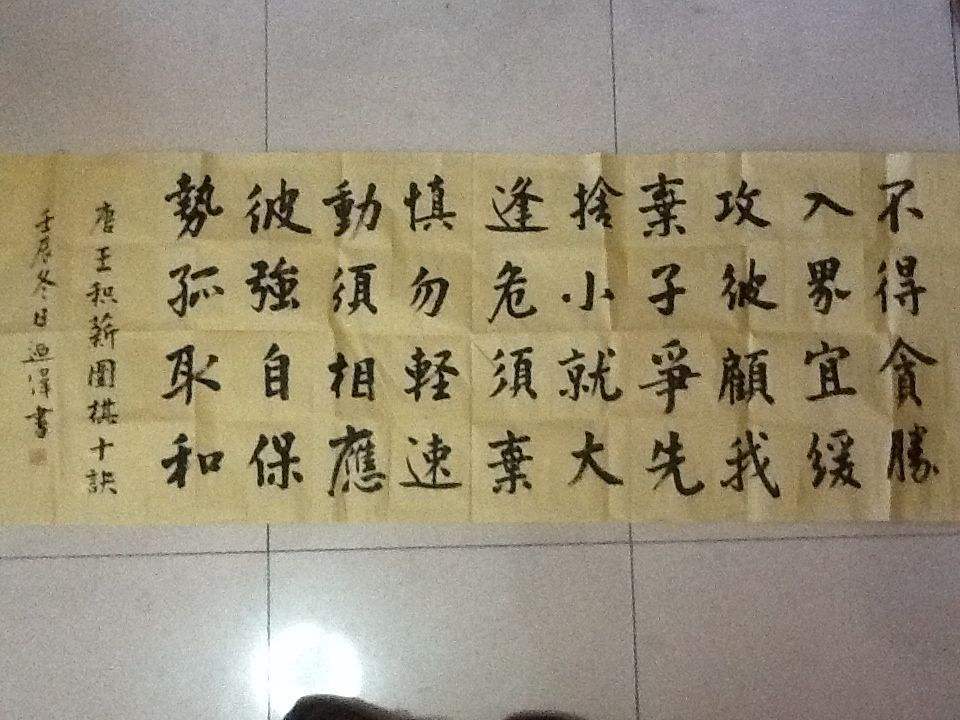 不得貪勝
入界宜緩
攻彼顧我
棄子爭先
捨小就大
逢危須棄
慎勿軽速
動須相應
彼強自保
勢孤取和
唐王积薪圍棋十訣
壬辰冬日迎偉書